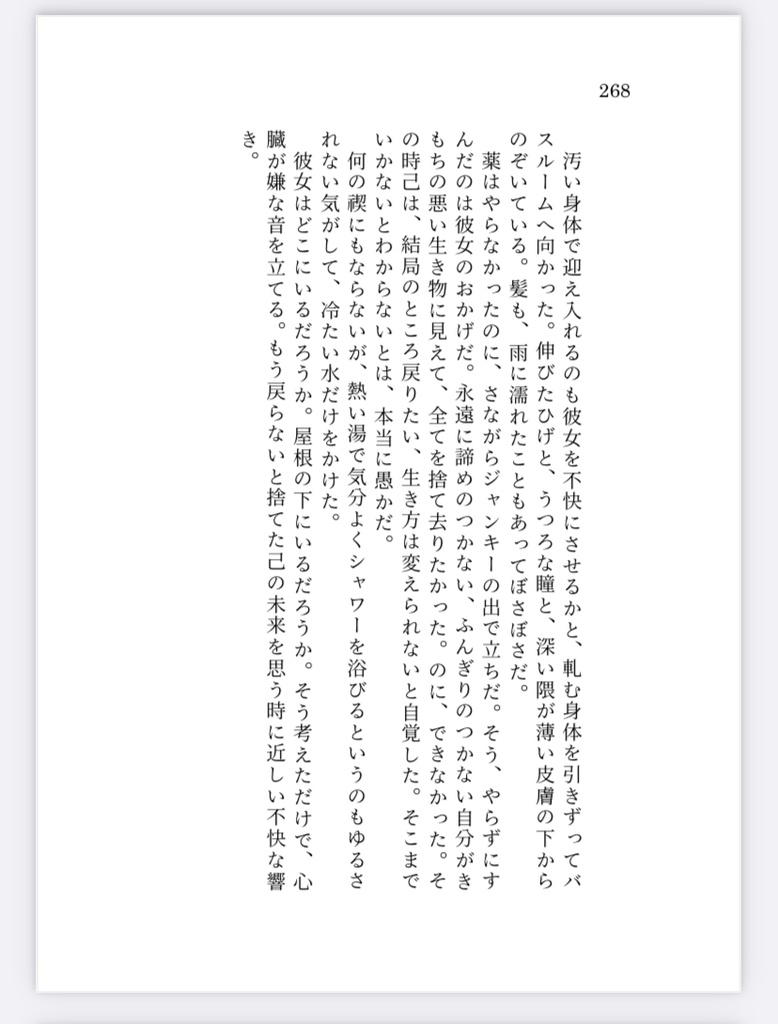 268
汚い身体で迎え入れるのも彼女を不快にさせるかと、軋む身体を引きずってバ
スルームへ向かった。伸びたひげと、うつろな瞳と、深い隈が薄い皮膚の下から
のぞいている。髪も、雨に濡れたこともあってぼさぼさだ。
薬はやらなかったのに、さながらジャンキーの出で立ちだ。そう、やらずにす
んだのは彼女のおかげだ。永遠に諦めのつかない、ふんぎりのつかない自分がき
もちの悪い生き物に見えて、全てを捨て去りたかった。のに、できなかった。そ
の時己は、結局のところ戻りたい、生き方は変えられないと自覚した。そこまで
いかないとわからないとは、本当に愚かだ。
何の禊にもならないが、熱い湯で気分よくシャワーを浴びるというのもゆるさ
れない気がして、冷たい水だけをかけた。
彼女はどこにいるだろうか。屋根の下にいるだろうか。そう考えただけで、心
臓が嫌な音を立てる。もう戻らないと捨てた己の未来を思う時に近しい不快な響
き。